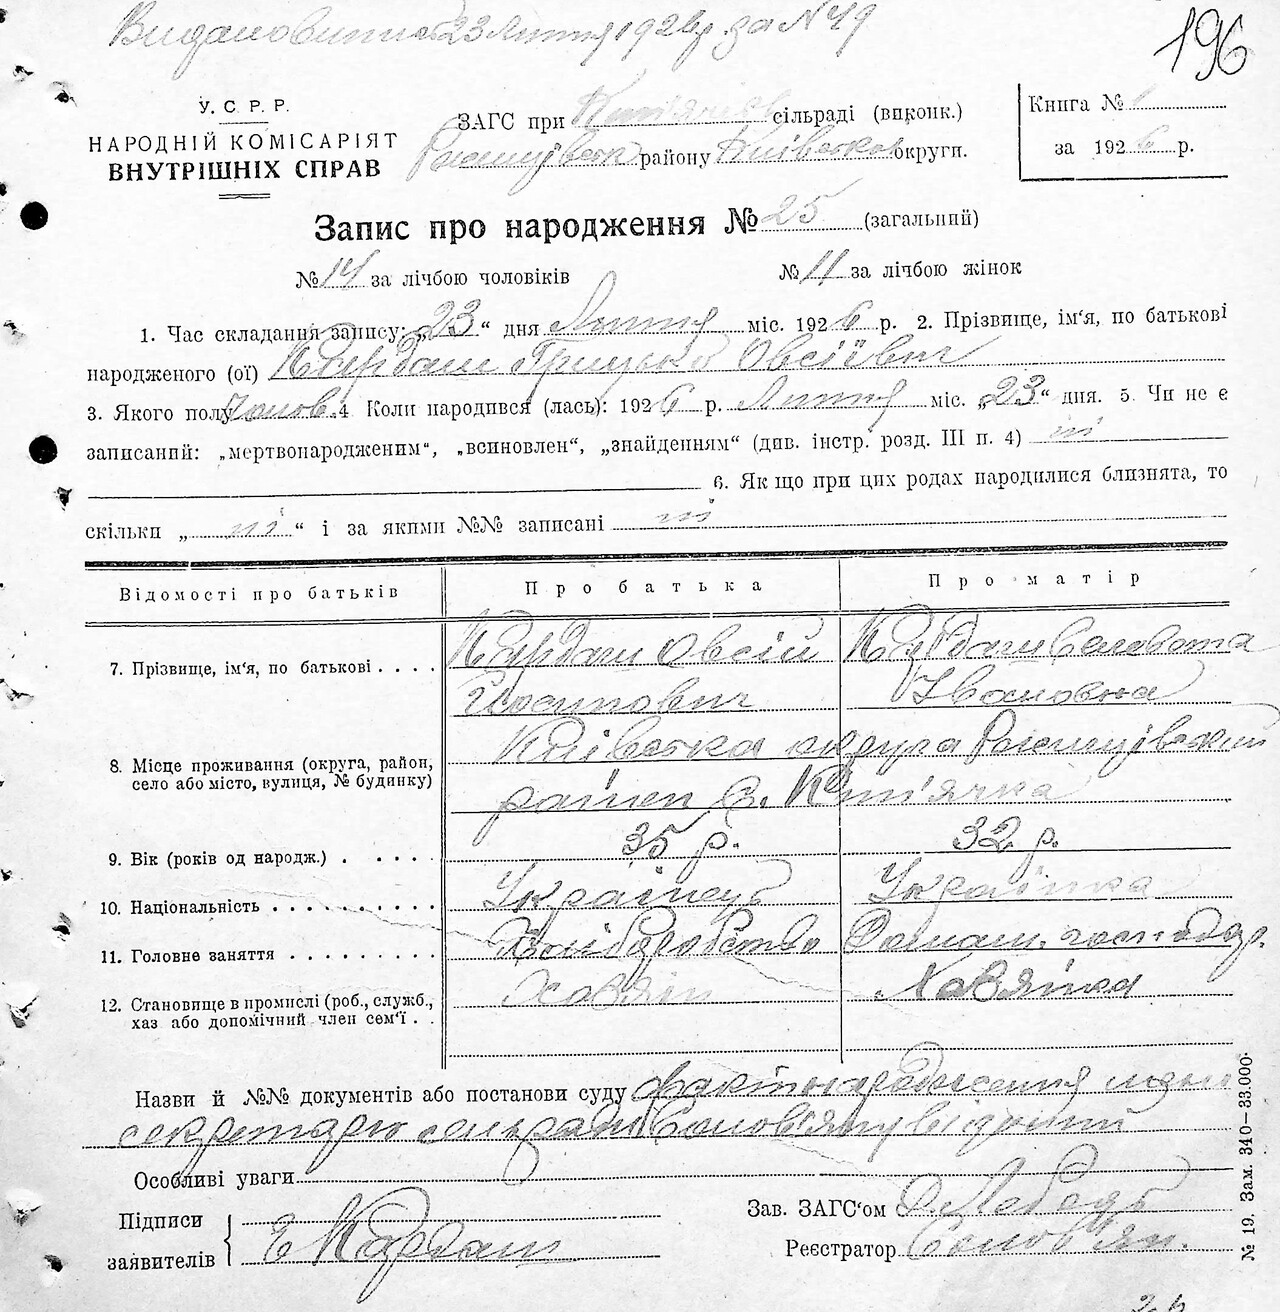 23 Лютня 1926 р. за № 49
196
У.С.Р.Р.
НАРОДНІЙ КОМІСАРІЯТ
ВНУТРІШНІХ СПРАВ
ЗАГС при сільраді (виконк.)
району Київської округи.
Книга № 1
за 1926 р.
Запис про народження № 25 (загальний)
№ 14 за лічбою чоловіків № 11 за лічбою жінок
1. Час складання запису: „23“ дня Лютня міс. 1926 р. 2. Прізвище, ім'я, по батькові
народженого (ої) Кардаш Грицько Овсіївич
3. Якого полу чолов. 4 Коли народився (лась): 1926 р. Лютня міс. „23“ дня. 5. Чи не є
записаний: „мертвонародженим“, „всиновлен“, „знайденням“ (див. інстр. розд. III п. 4) ні
6. Як що при цих родах народилися близнята, то
скільки „ні“ і за якими №№ записані ні
Відомості про батьків Про батька Про матір
7. Прізвище, ім'я, по батькові . . . . Кардаш Овсій Кардаш
Івановна
8. Місце проживання (округа, район, село або місто, вулиця, № будинку) Київська округа
район с.
9. Вік (років од народж.) . . . . . 35 р. 32 р.
10. Національність . . . . . . . . . . Українець Українка
11. Головне заняття . . . . . . . . . Хліборобство Домаш. господар.
12. Становище в промислі (роб., служб., хаз або допомічний член сем'ї . . Хазяїн Хазяйка
Назви й №№ документів або постанови суду факт народження
секретарю сельради Соловьяну відомий
Особливі уваги
Підписи заявителів Е Кардаш
Зав. ЗАГС‘ом Лебедь
Реєстратор Солов'ян.
№ 19. Зам. 340—33.000.